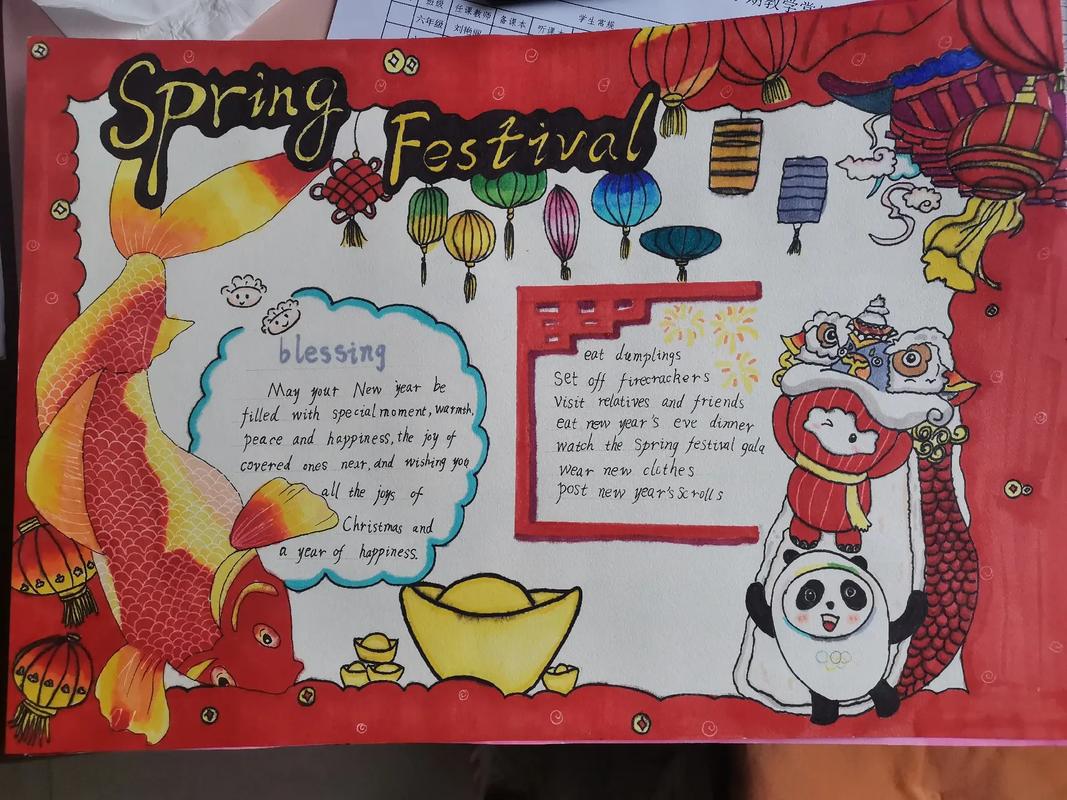 班级 任课教师 备课本 听课本 学生常规
六年级 刘艳丽
Spring
Festival
blessing
May your New year be
filled with special moment, warmth,
peace and happiness, the joy of
covered ones near, and wishing you
all the joys of
Christmas and
a year of happiness.
eat dumplings
Set off firecrackers
visit relatives and friends
eat new year's eve dinner
watch the Spring festival gala
wear new clothes
post new year's scrolls